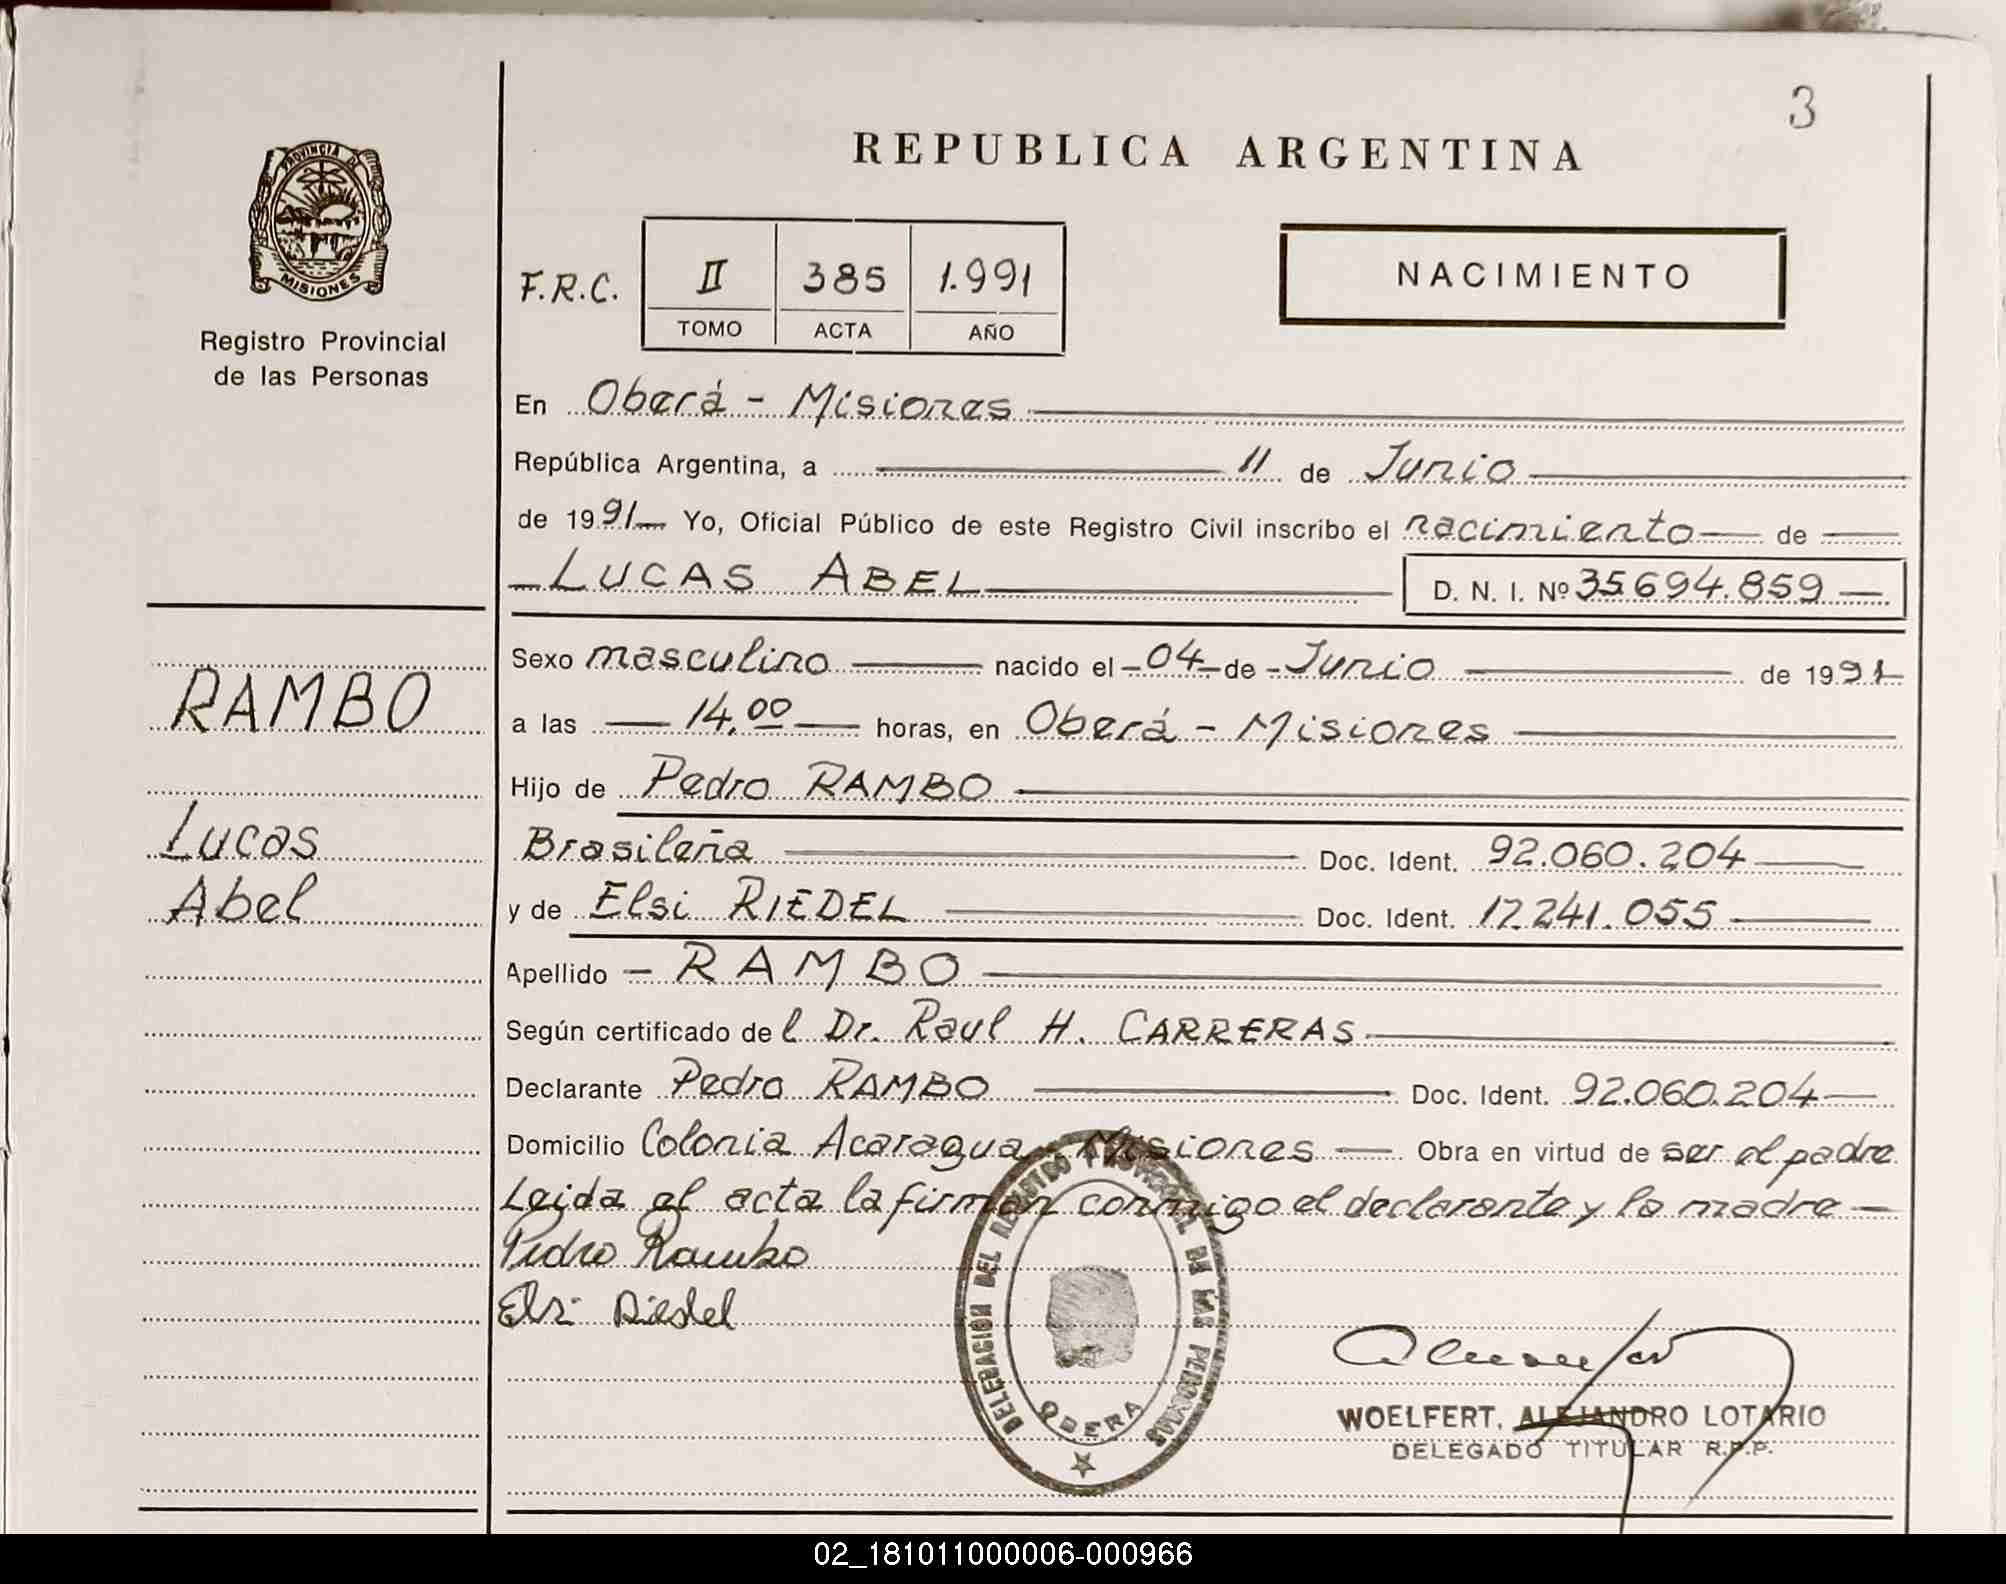 3
REPUBLICA ARGENTINA
PROVINCIA DE
MISIONES
Registro Provincial
de las Personas
F.R.C.
II 385 1.991
TOMO ACTA AÑO
NACIMIENTO
En Oberá - Misiones
República Argentina, a 11 de Junio
de 1991 Yo, Oficial Público de este Registro Civil inscribo el nacimiento de
LUCAS ABEL D. N. I. Nº 35694.859
RAMBO
Lucas
Abel
Sexo masculino nacido el 04 de Junio de 1991
a las 14,00 horas, en Oberá - Misiones
Hijo de Pedro RAMBO
Brasileña Doc. Ident. 92.060.204
y de Elsi RIEDEL Doc. Ident. 17.241.055
Apellido RAMBO
Según certificado del Dr. Raul H. CARRERAS
Declarante Pedro RAMBO Doc. Ident. 92.060.204
Domicilio Colonia Acaragua - Misiones Obra en virtud de ser el padre
Leida el acta la firman conmigo el declarante y la madre
Pedro Rambo
Elsi Riedel
DELEGACIÓN DEL REGISTRO PROVINCIAL DE LAS PERSONAS
OBERA
WOELFERT, ALEJANDRO LOTARIO
DELEGADO TITULAR R.P.P.
02_181011000006-000966